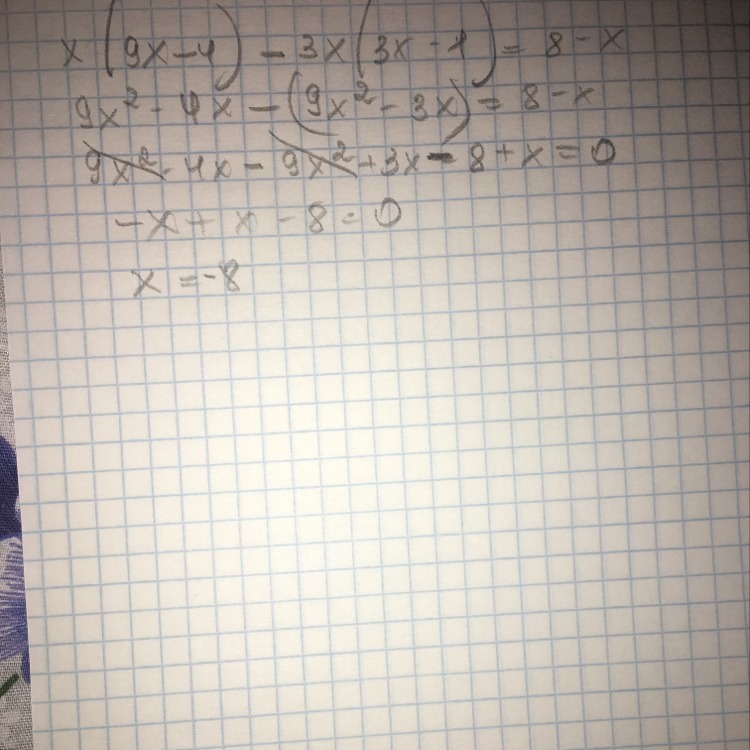 x(9x-4)-3x(3x-1)=8-x
9x²-4x-(9x²-3x)=8-x
9x²-4x-9x²+3x-8+x=0
-x+x-8=0
x=-8